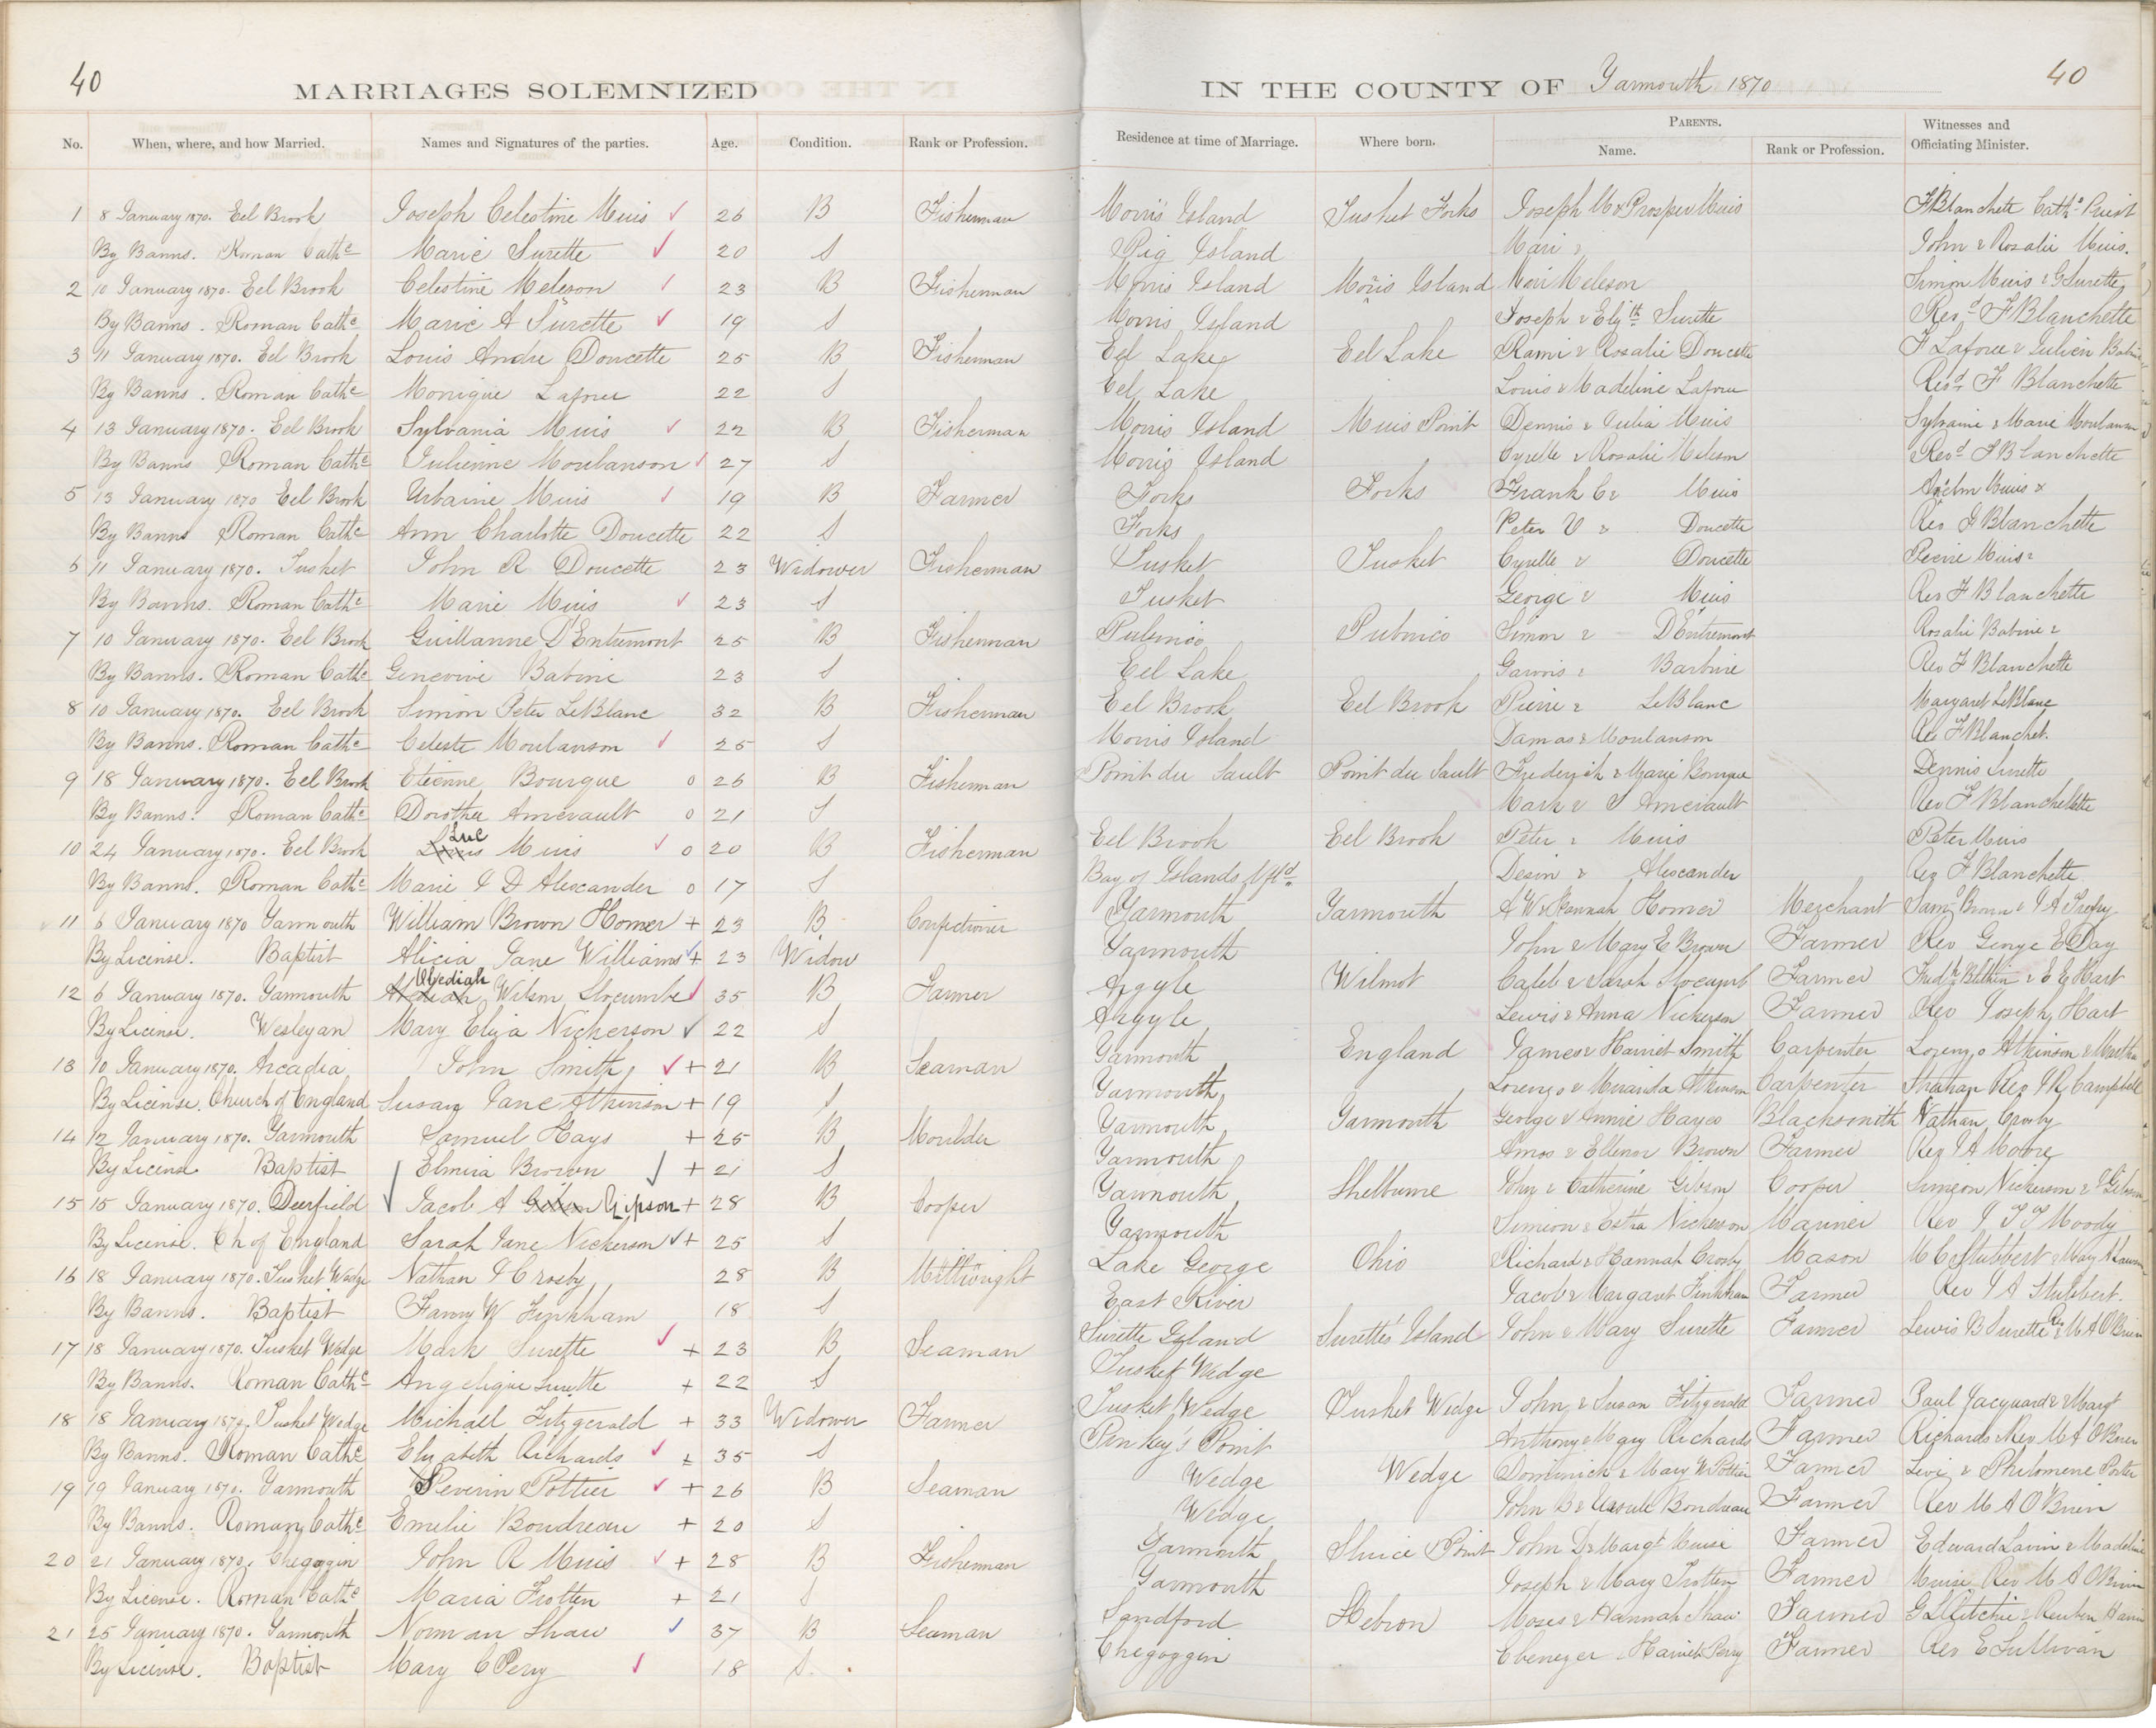 40
MARRIAGES SOLEMNIZED IN THE COUNTY OF Yarmouth 1870
40
No. When, where, and how Married. Names and Signatures of the parties. Age. Condition. Rank or Profession. Residence at time of Marriage. Where born. PARENTS. Name. Rank or Profession. Witnesses and Officiating Minister.
1 8 January 1870. Eel Brook Joseph Celestine Muis 26 B Fisherman Morris Island Tusket Forks Joseph M & Prosper Muis F Blanchette Cathc Priest
By Banns. Roman Cathc Marie Surette 20 S Pig Island Mari & John & Rosalie Muis.
2 10 January 1870. Eel Brook Celestine Meleson 23 B Fisherman Morris Island Morris Island Meleson Simon Muis & G Surette
By Banns. Roman Cathc Marie A Surette 19 S Morris Island Joseph & Elizth Surette Revd F Blanchette
3 11 January 1870. Eel Brook Louis Andre Doucette 25 B Fisherman Eel Lake Eel Lake Rami & Rosalie Doucette F Laforce & Julien
By Banns. Roman Cathc Monique Laforce 22 S Eel Lake Louis & Madeline Laforce Revd F Blanchette
4 13 January 1870. Eel Brook Sylvania Muis 22 B Fisherman Morris Island Muis Point Dennis & Julia Muis Sylvaine & Marie Moulanson
By Banns Roman Cathc Julienne Moulanson 27 S Morris Island Cyrelle & Rosalie Meleson Revd F Blanchette
5 13 January 1870 Eel Brook Urbaine Muis 19 B Farmer Forks Forks Frank C & Muis Anselm Muis &
By Banns Roman Cathc Ann Charlotte Doucette 22 S Forks Peter V & Doucette Rev F Blanchette
6 11 January 1870. Tusket John R Doucette 23 Widower Fisherman Tusket Tusket Cyrille & Doucette Pierre Muis &
By Banns. Roman Cathc Marie Muis 23 S Tusket George & Muis Rev F Blanchette
7 10 January 1870. Eel Brook Guillanne D'Entremont 25 B Fisherman Pubnico Pubnico Simon & D'Entremont Rosalie Babine &
By Banns. Roman Cathc Genevive Babine 23 S Eel Lake Garvis & Barbine Rev F Blanchette
8 10 January 1870. Eel Brook Simon Peter LeBlanc 32 B Fisherman Eel Brook Eel Brook Pierre & LeBlanc Margaret LeBlanc
By Banns. Roman Cathc Celeste Moulanson 25 S Morris Island Damas & Moulanson Rev F Blanchet.
9 18 January 1870. Eel Brook Etienne Bourque o 26 B Fisherman Point du Sault Point du Sault Frederick & Marie Bourque Dennis Surette
By Banns. Roman Cathc Dorothee Amerault o 21 S Mark & S Amerault Rev F Blanchette
10 24 January 1870. Eel Brook Louis Luc Muis o 20 B Fisherman Eel Brook Eel Brook Peter & Muis Peter Muis
By Banns. Roman Cathc Marie I D Alexander o 17 S Bay of Islands Nfd. Desin & Alexander Rev F Blanchette
11 6 January 1870 Yarmouth William Brown Homer + 23 B Confectioner Yarmouth Yarmouth A W & Hannah Homer Merchant Saml Brown & J A Trefry
By License. Baptist Alicia Jane Williams + 23 Widow Yarmouth John & Mary E Brown Farmer Rev George E Day
12 6 January 1870. Yarmouth Obediah Wilson Slocumbe 35 B Farmer Argyle Wilmot Caleb & Sarah Slocumb Farmer
By License. Wesleyan Mary Eliza Nickerson 22 S Argyle Lewis & Anna Nickerson Farmer Rev Joseph Hart
13 10 January 1870. Arcadia John Smith + 21 B Seaman Yarmouth England James & Harriet Smith Carpenter Lorenzo Atkinson & Martha
By License. Church of England Susan Jane Atkinson + 19 S Yarmouth Lorenzo & Miranda Atkinson Carpenter Strahan Rev J R Campbell
14 12 January 1870. Yarmouth Samuel Hays + 25 B Moulder Yarmouth Yarmouth George & Annie Hayes Blacksmith Nathan Crosby
By License Baptist Elmira Brown + 21 S Yarmouth Amos & Ellenor Brown Farmer Rev J A Moore
15 15 January 1870. Deerfield Jacob A Gibson Gipson + 28 B Cooper Yarmouth Shelburne John & Catherine Gibson Cooper Simeon Nickerson & J Gibson
By License. Ch of England Sarah Jane Nickerson + 25 S Yarmouth Simeon & Nickerson Mariner Rev J T T Moody
16 18 January 1870. Tusket Wedge Nathan J Crosby 28 B Millwright Lake George Ohio Richard & Hannah Crosby Mason M C Stubbert & Mary
By Banns. Baptist Fanny W Finkham 18 S East River Jacob & Margaret Finkham Farmer Rev J A Stubbert.
17 18 January 1870. Tusket Wedge Mark Surette + 23 B Seaman Surette Island Surette's Island John & Mary Surette Farmer Lewis B Surette Rev M A OBrien
By Banns. Roman Cathc Angelique Surette + 22 S Tusket Wedge
18 18 January 1870. Tusket Wedge Michael Fitzgerald + 33 Widower Farmer Tusket Wedge Tusket Wedge John & Susan Fitzgerald Farmer Paul Jacquard & Margt
By Banns. Roman Cathc Elizabeth Richards + 35 S Pinkey's Point Anthony & Mary Richards Farmer Richards Rev M A OBrien
19 19 January 1870. Yarmouth Severin Pottier + 26 B Seaman Wedge Wedge Dominick & Mary M Pottier Farmer Levi & Philomene Pottier
By Banns. Roman Cathc Emelie Boudreau + 20 S Wedge John B & Ursule Boudreau Farmer Rev M A OBrien
20 21 January 1870. Chegoggin John R Muis + 28 B Fisherman Yarmouth Sluice Point John D & Margt Muise Farmer Edward Lavin & Madeline
By License. Roman Cathc Maria Trotten + 21 S Yarmouth Joseph & Mary Trotten Farmer Muise Rev M A OBrien
21 25 January 1870. Yarmouth Norman Shaw 37 B Seaman Sandford Hebron Moses & Hannah Shaw Farmer G L Ritchie & Reuben
By License. Baptist Mary C Perry 18 S. Chegoggin Ebenezer Harriet Perry Farmer Rev E Sullivan